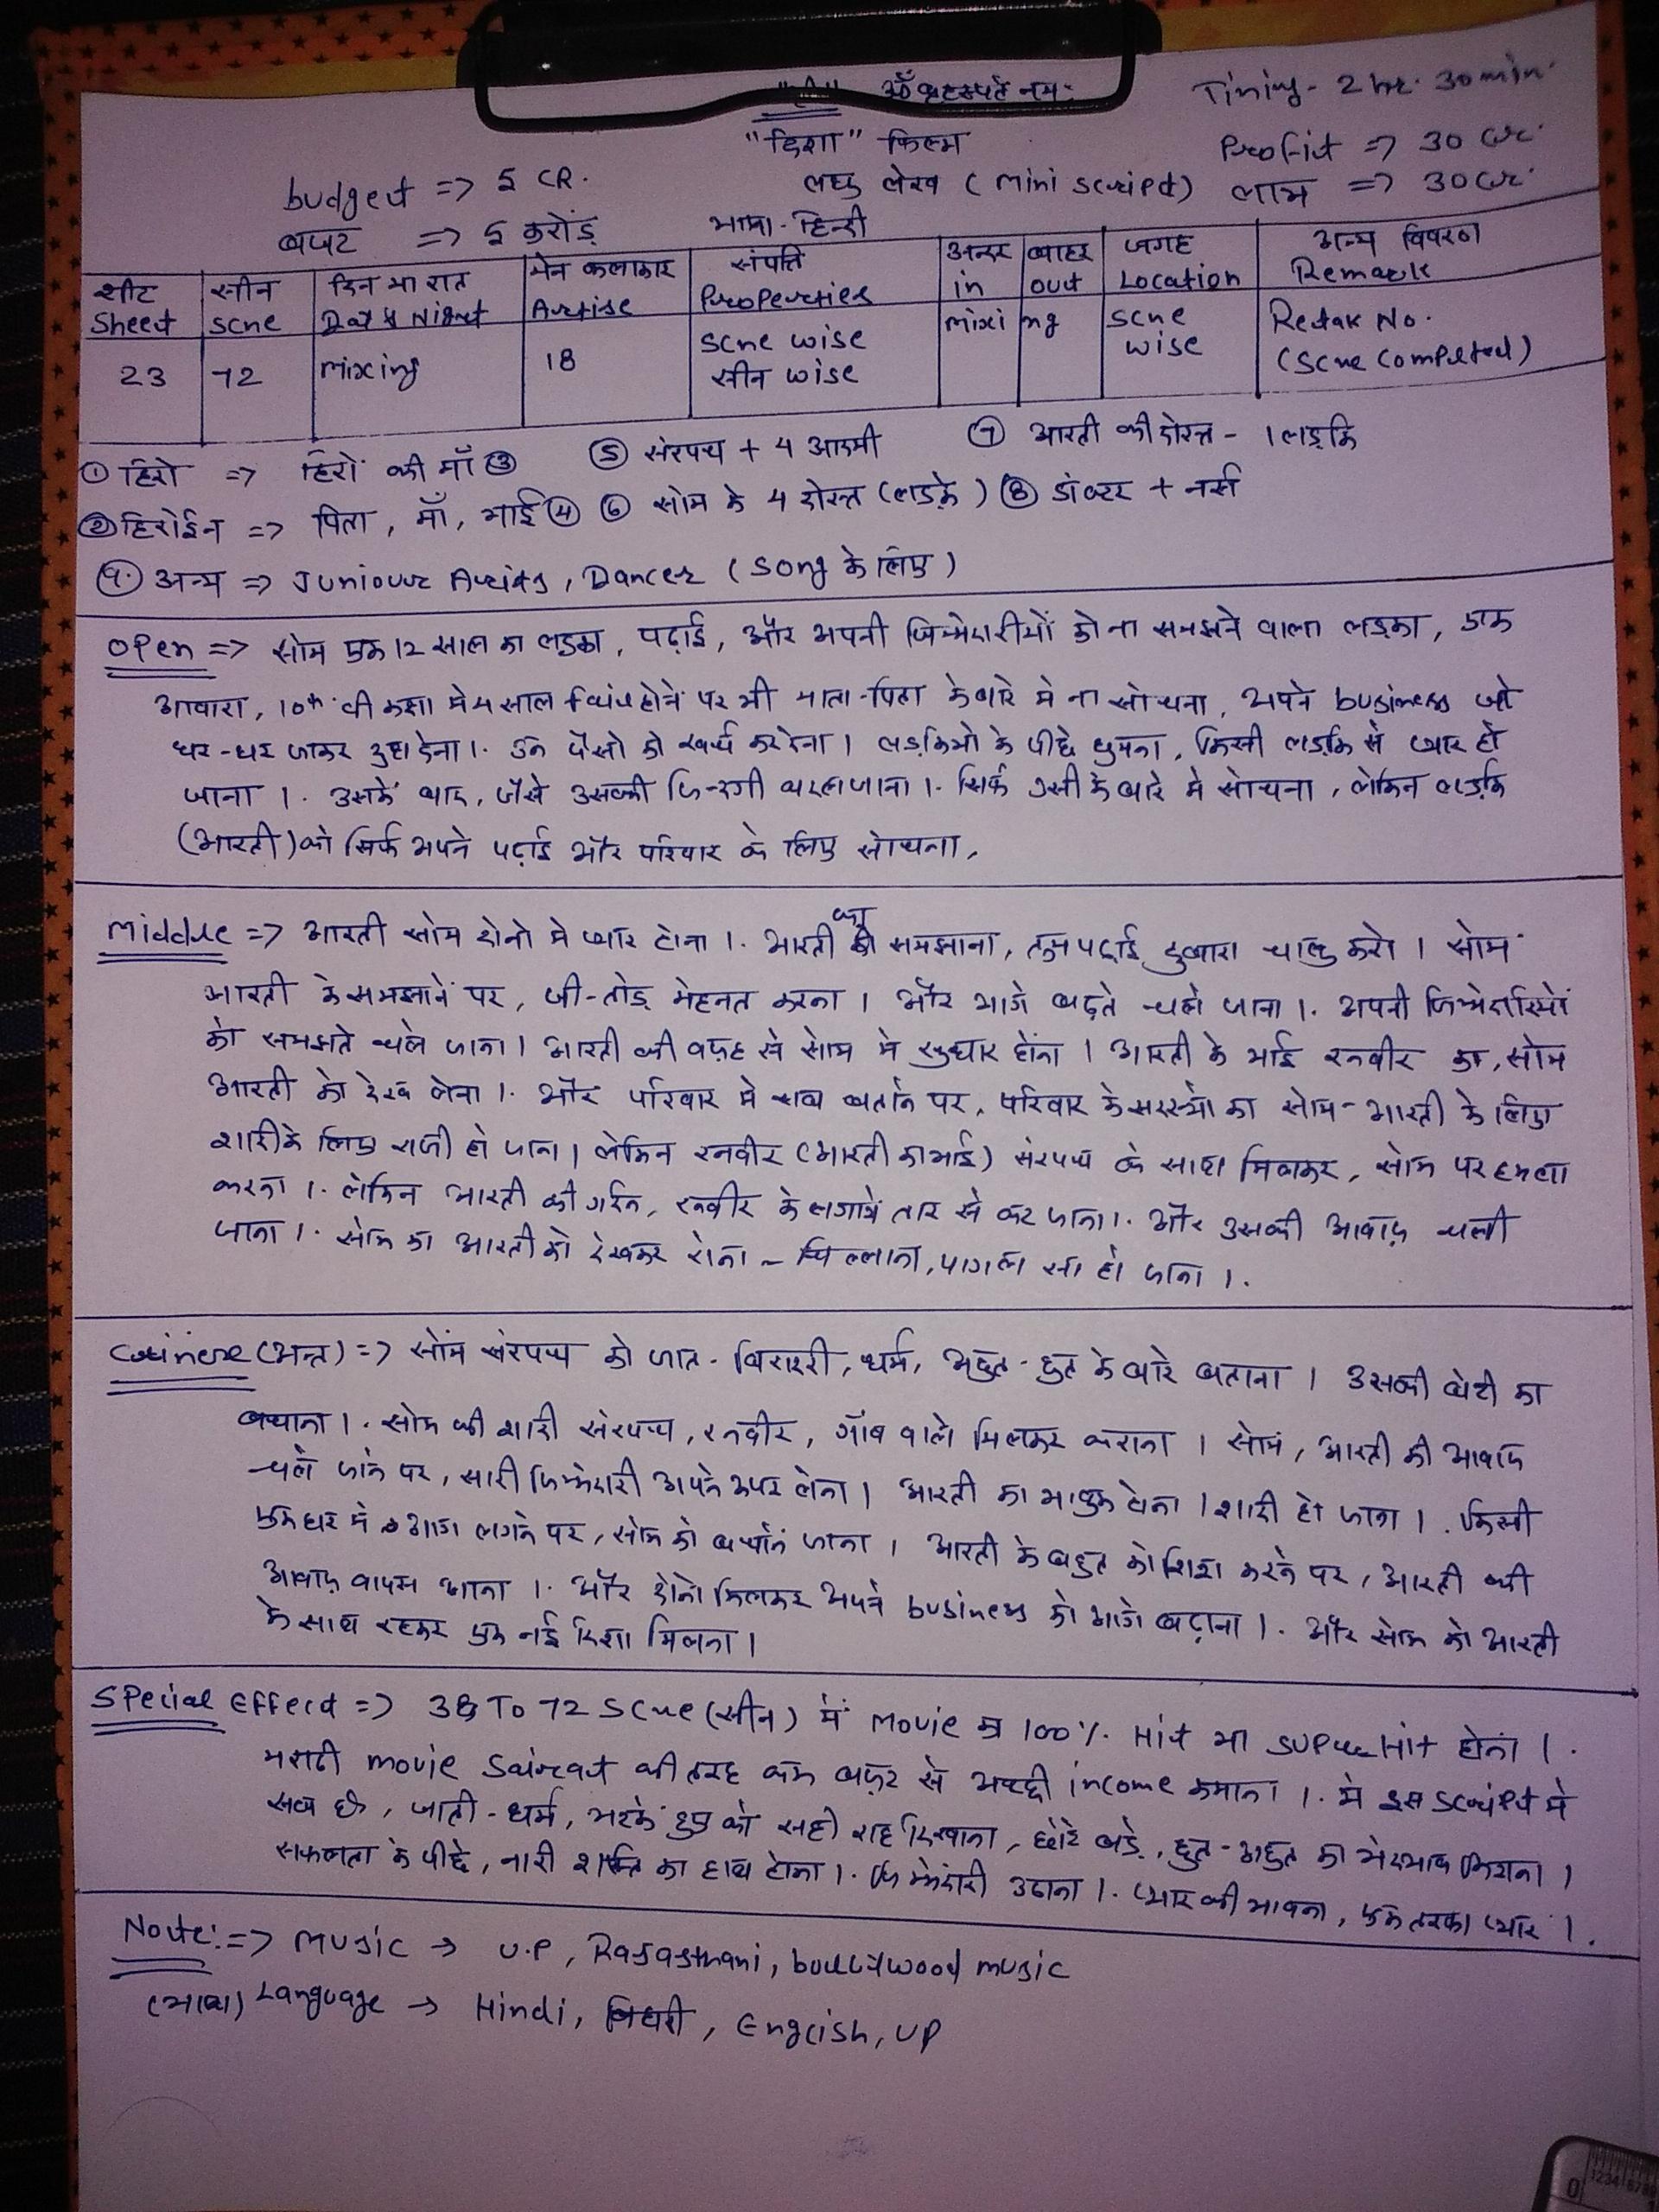 ॐ बृहस्पते नमः
Timing - 2 hr. 30 min.
"दिशा" फिल्म
Profit => 30 cr.
budget => 5 CR.
लघु लेख (mini script)
लाभ => 30 cr.
बजट => 5 करोड़
भाषा - हिन्दी
शीट सीन दिन या रात मेन कलाकार संपत्ति अन्दर बाहर जगह अन्य विवरण
Sheet scne Day & Night Artise Properties in out Location Remark
23 72 mixing 18 scne wise mixi ng scne wise Retak No.
सीन wise (scne completed)
① हिरो => हिरो की माँ ③ ⑤ संरपच + 4 आदमी ⑦ आरती की दोस्त - 1 लड़कि
② हिरोईन => पिता, माँ, भाई ④ ⑥ सोम के 4 दोस्त (लड़के) ⑧ डॉक्टर + नर्स
⑨. अन्य => Juniour Artits, Dancer (song के लिए)
open => सोम एक 12 साल का लड़का, पढ़ाई, और अपनी जिम्मेदारीयों को ना समझने वाला लड़का, एक
आवारा, 10th वी कक्षा मे 4 साल होने पर भी माता-पिता के बारे मे ना सोचना, अपने business जो
घर-घर जाकर देना।. उन पैसो को खर्च कर देना। लड़कियो के पीछे घुमना, किसी लड़कि से प्यार हो
जाना।. उसके बाद, जैसे उसकी जिन्दगी बदल जाना।. सिर्फ उसी के बारे मे सोचना, लेकिन लड़कि
(आरती) को सिर्फ अपने पढ़ाई और परिवार के लिए सोचना,
middle => आरती सोम दोनो मे प्यार होना।. आरती का समझाना, तुम पढ़ाई दुबारा चालु करो। सोम
आरती के समझाने पर, जी-तोड़ मेहनत करना। और आगे बढ़ते चले जाना।. अपनी जिम्मेदारियों
को समझते चले जाना। आरती की वजह से सोम मे सुधार होना। आरती के भाई रनवीर का, सोम
आरती को देख लेना।. और परिवार मे सब बताने पर, परिवार के सदस्यो का सोम-आरती के लिए
शादी के लिए राजी हो जाना। लेकिन रनवीर (आरती का भाई) संरपच के साथ मिलकर, सोम पर हमला
करना।. लेकिन आरती की गर्दन, रनवीर के लगाये तार से कट जाना।. और उसकी आवाज़ चली
जाना।. सोम का आरती को देखकर रोना - चिल्लाना, पागल सा हो जाना।.
(अन्त) => सोम संरपच को जात-बिरादरी, धर्म, अछुत-छुत के बारे बताना। उसकी बेटी का
बचाना।. सोम की शादी संरपच, रनवीर, गाँव वाले मिलकर कराना। सोम, आरती की आवाज
चले जाने पर, सारी जिम्मेदारी अपने उपर लेना। आरती का भावुक होना। शादी हो जाना।. किसी
एक घर मे आग लगने पर, सोम को बचाने जाना। आरती के बहुत कोशिश करने पर, आरती की
आवाज़ वापस आना।. और दोनो मिलकर अपने business को आगे बढ़ाना।. और सोम को आरती
के साथ रहकर एक नई दिशा मिलना।
Special Effect => 38 To 72 Scne (सीन) में movie का 100% Hit या SUPER Hit होना।.
मराठी movie Sairaat की तरह कम बजट से अच्छी income कमाना।. मे इस script मे
सब है, जाती-धर्म, भटके हुए को सही राह दिखाना, छोटे बड़े, छुत-अछुत का भेदभाव मिटाना।
सफलता के पीछे, नारी शक्ति का हाथ होना।. जिम्मेदारी उठाना।. प्यार की भावना, एक तरफा प्यार।.
Note: => Music → U.P, Rajasthani, bollywood music
(भाषा) Language → Hindi, English, UP
0 12345678